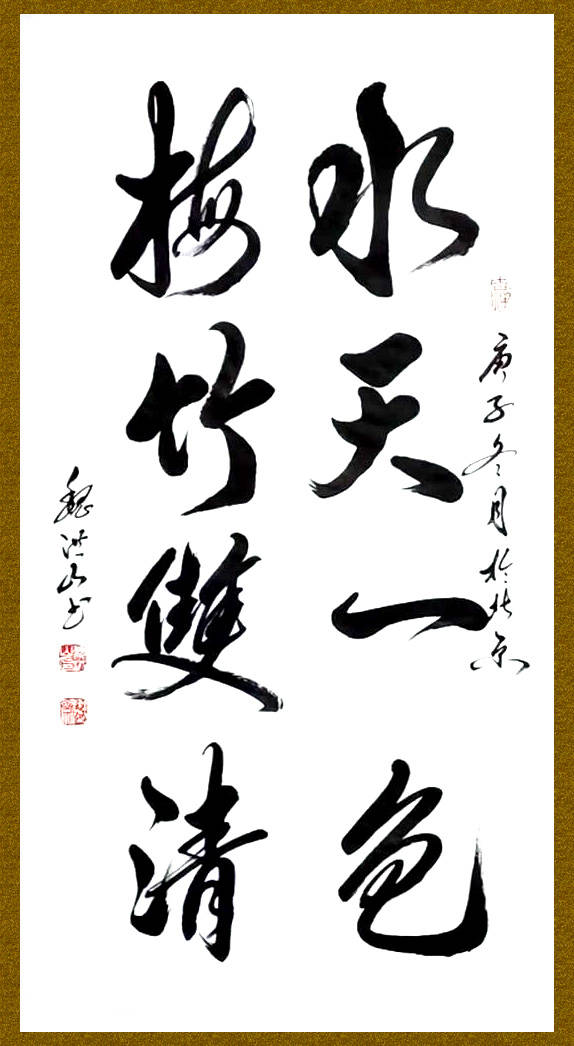 庚子冬月於北京
水天一色
梅竹雙清
魏洪山书